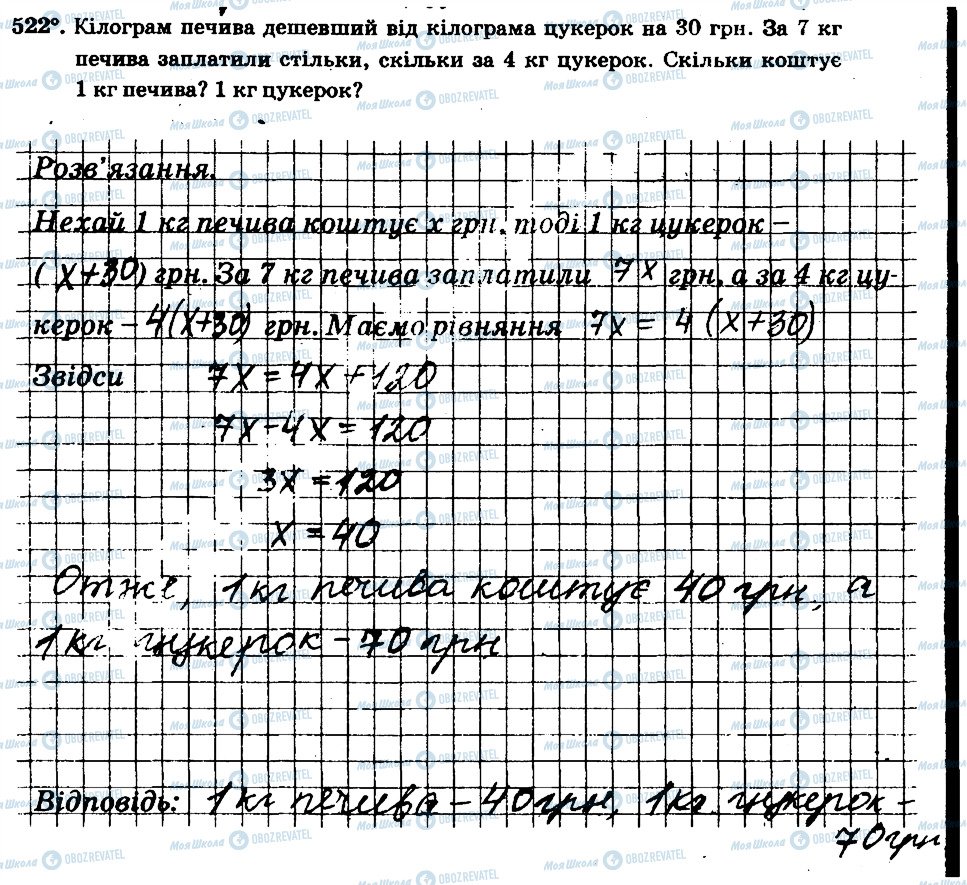 522°. Кілограм печива дешевший від кілограма цукерок на 30 грн. За 7 кг
печива заплатили стільки, скільки за 4 кг цукерок. Скільки коштує
1 кг печива? 1 кг цукерок?
Розв'язання.
Нехай 1 кг печива коштує x грн, тоді 1 кг цукерок –
(x+30) грн. За 7 кг печива заплатили 7x грн, а за 4 кг цу-
керок – 4(x+30) грн. Маємо рівняння 7x = 4(x+30)
Звідси 7x = 4x + 120
7x - 4x = 120
3x = 120
x = 40
Отже, 1 кг печива коштує 40 грн, а
1 кг цукерок - 70 грн
Відповідь: 1 кг печива - 40 грн, 1 кг цукерок -
70 грн
МояШкола OBOZREVATEL